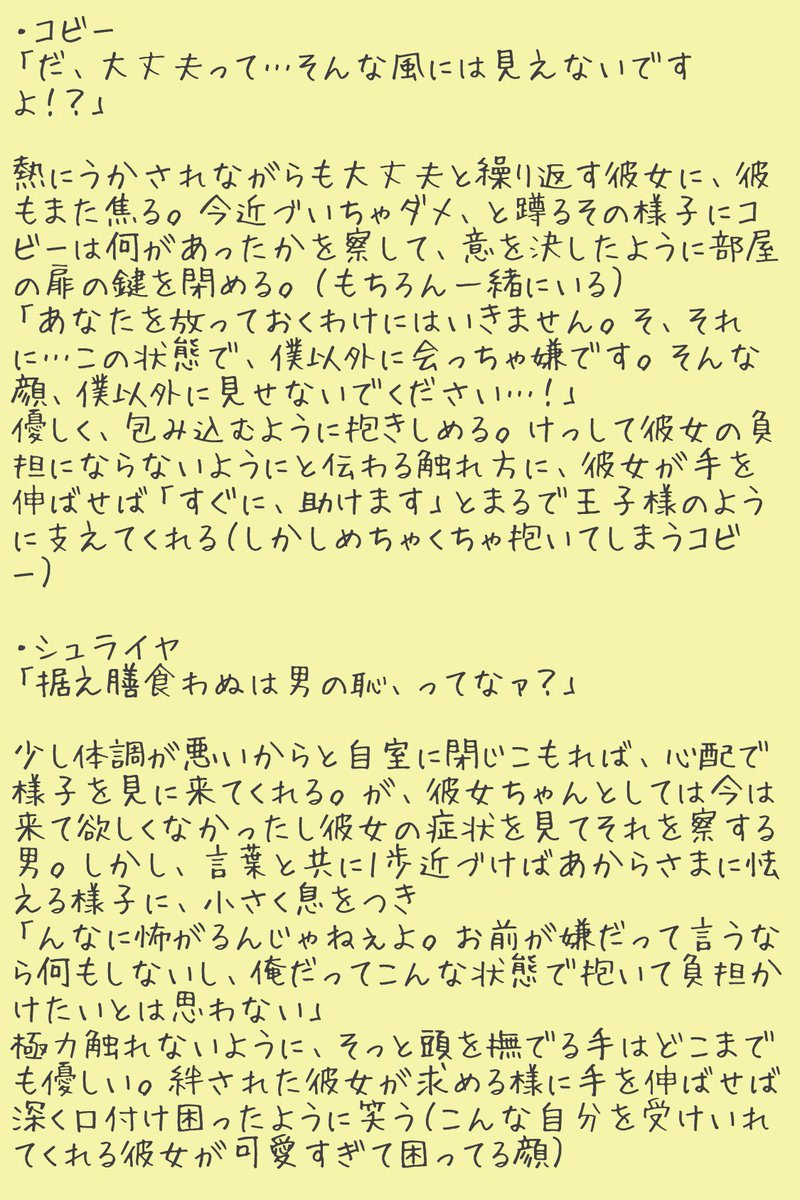 ・コビー
「だ、大丈夫って…そんな風には見えないです
よ！？」
熱にうかされながらも大丈夫と繰り返す彼女に、彼
もまた焦る。今近づいちゃダメ、と蹲るその様子にコ
ビーは何があったかを察して、意を決したように部屋
の扉の鍵を閉める。(もちろん一緒にいる)
「あなたを放っておくわけにはいきません。そ、それ
に…この状態で、僕以外に会っちゃ嫌です。そんな
顔、僕以外に見せないでください…！」
優しく、包み込むように抱きしめる。けっして彼女の負
担にならないようにと伝わる触れ方に、彼女が手を
伸ばせば「すぐに、助けます」とまるで王子様のよう
に支えてくれる(しかしめちゃくちゃ抱いてしまうコビ
ー)
・シュライヤ
「据え膳食わぬは男の恥、ってなァ？」
少し体調が悪いからと自室に閉じこもれば、心配で
様子を見に来てくれる。が、彼女ちゃんとしては今は
来て欲しくなかったし彼女の症状を見てそれを察する
男。しかし、言葉と共に1歩近づけばあからさまに怯
える様子に、小さく息をつき
「んなに怖がるんじゃねぇよ。お前が嫌だって言うな
ら何もしないし、俺だってこんな状態で抱いて負担か
けたいとは思わない」
極力触れないように、そっと頭を撫でる手はどこまで
も優しい。絆された彼女が求める様に手を伸ばせば
深く口付け困ったように笑う(こんな自分を受けいれ
てくれる彼女が可愛すぎて困ってる顔)